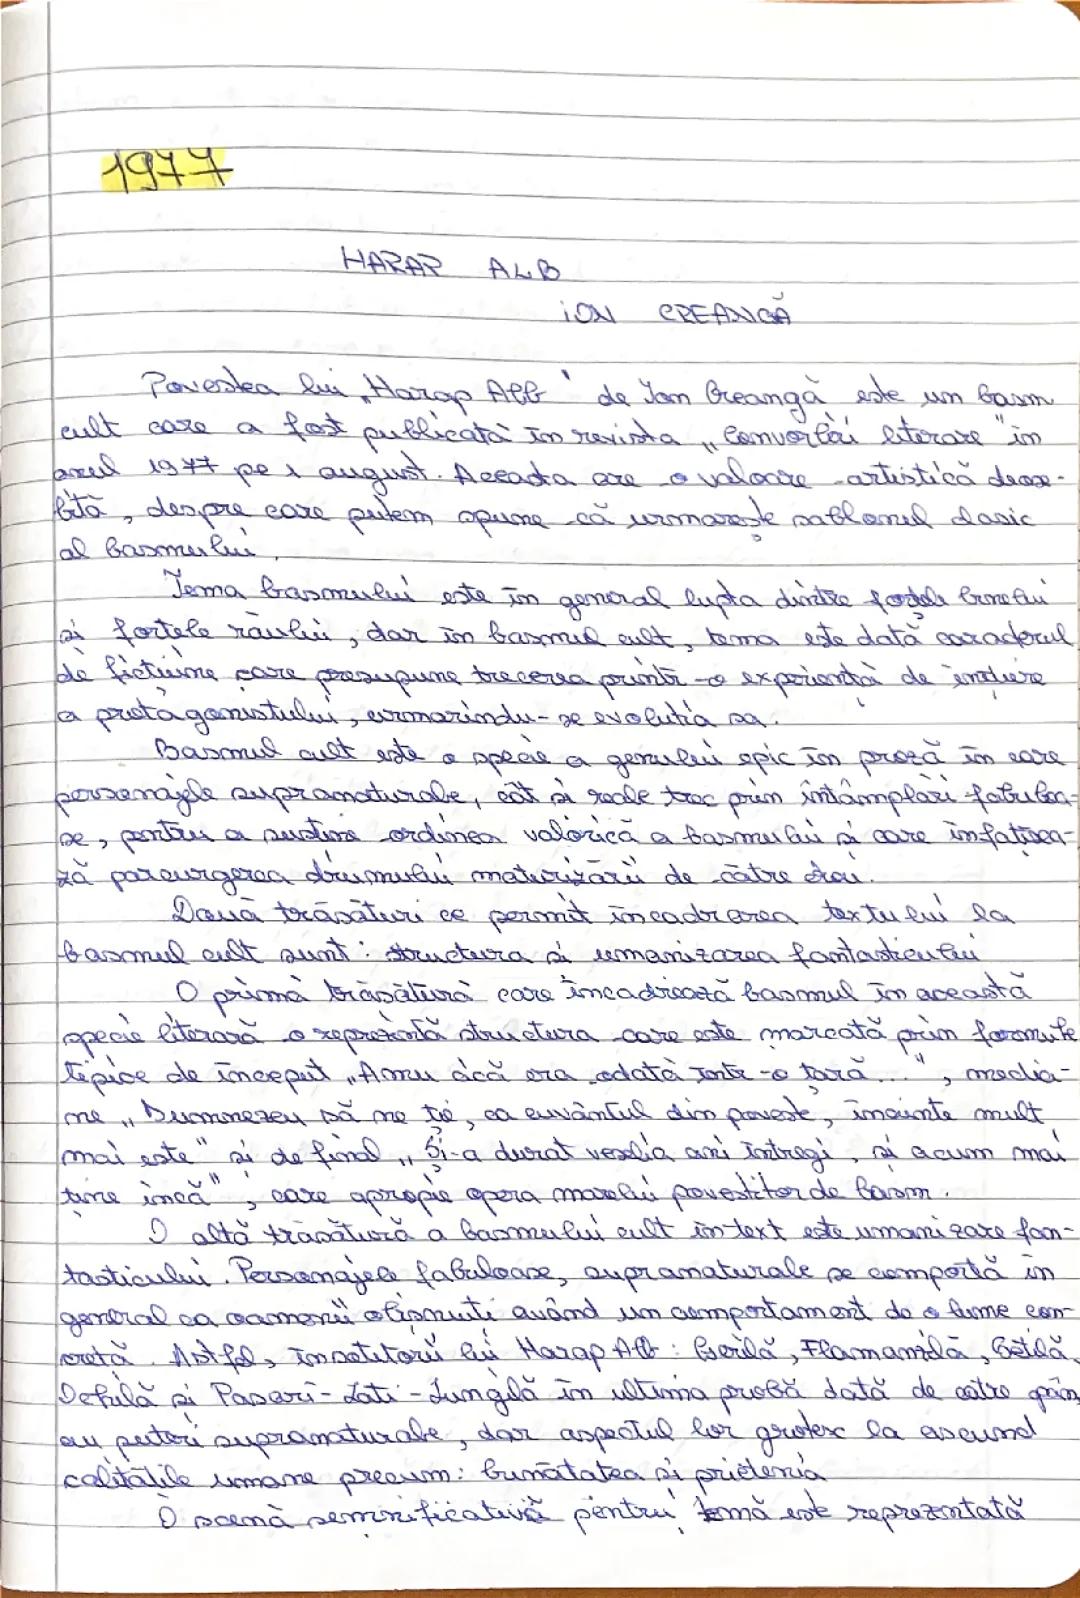 1977
HARAP ALB
ION CREANGĂ
Povestea lui „Harap Alb" de Ion Creangă este un basm
cult care a fost publicată în revista „Convorbiri literare" în
anul 1977 pe 1 august. Aceasta are o valoare artistică deose-
bită, despre care putem spune că urmărește șablonul clasic
al basmului.
Tema basmului este în general lupta dintre forțele binelui
și forțele răului, dar în basmul cult, tema este dată caracterul
de ficțiune care presupune trecerea printr-o experiență de inițiere
a protagonistului, urmărindu-se evoluția sa.
Basmul cult este o specie a genului epic în proză în care
personajele supranaturale, cât și reale trec prin întâmplări fabuloa-
se, pentru a susține ordinea valorică a basmului și care înfățișea-
ză parcurgerea drumului maturizării de către erou.
Două trăsături ce permit încadrarea textului la
basmul cult sunt: structura și umanizarea fantasticului
O primă trăsătură care încadrează basmul în această
specie literară o reprezintă structura care este marcată prin formule
tipice de început „Amu dcă era odată într-o țară...", media-
ne „Dumnezeu să ne ție, ca cuvântul din poveste, înainte mult
mai este" și de final „Și-a durat veselia ani întregi, și acum mai
ține încă", care apropie opera marelui povestitor de basm.
O altă trăsătură a basmului cult în text este umanizare fan-
tasticului. Personajele fabuloase, supranaturale se comportă în
general ca oamenii obișnuiți având un comportament de o lume con-
cretă. Astfel, însoțitorii lui Harap Alb: Gerilă, Flămânzilă, Setilă,
Ochilă și Păsări-Lăți-Lungilă în ultima probă dată de către
au puteri supranaturale, dar aspectul lor grotesc la ascund
calitățile umane precum: bunătatea și prietenia
O scenă semnificativă pentru temă este reprezentată